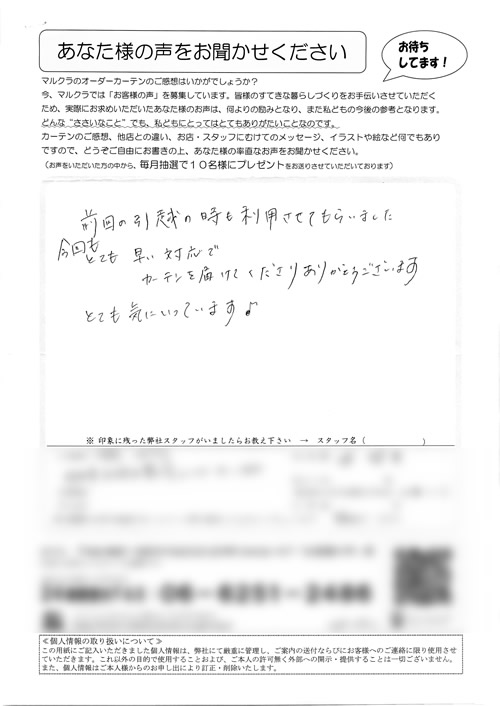 あなた様の声をお聞かせください
お待ち
してます！
マルクラのオーダーカーテンのご感想はいかがでしょうか？
今、マルクラでは「お客様の声」を募集しています。皆様のすてきな暮らしづくりをお手伝いさせていただく
ため、実際にお求めいただいたあなた様のお声は、何よりの励みとなり、また私どもの今後の参考となります。
どんな“ささいなこと”でも、私どもにとってはとてもありがたいことなのです。
カーテンのご感想、他店との違い、お店・スタッフにむけてのメッセージ、イラストや絵など何でもあり
ですので、どうぞご自由にお書きの上、あなた様の率直なお声をお聞かせください。
（お声をいただいた方の中から、毎月抽選で１０名様にプレゼントをお送りさせていただいております）
前回の引越の時も利用させてもらいました
今回も
とても早い対応で
カーテンを届けてくださりありがとうございます
とても気にいっています♪
※ 印象に残った弊社スタッフがいましたらお教え下さい → スタッフ名（ ）
≪個人情報の取り扱いについて≫
この用紙にご記入いただきました個人情報は、弊社にて厳重に管理し、ご案内の送付ならびにお客様へのご連絡に限り使用させ
ていただきます。これ以外の目的で使用することおよび、ご本人の許可無く外部への開示・提供することは一切ございません。
また、個人情報はご本人様からのお申し出により訂正・削除いたします。